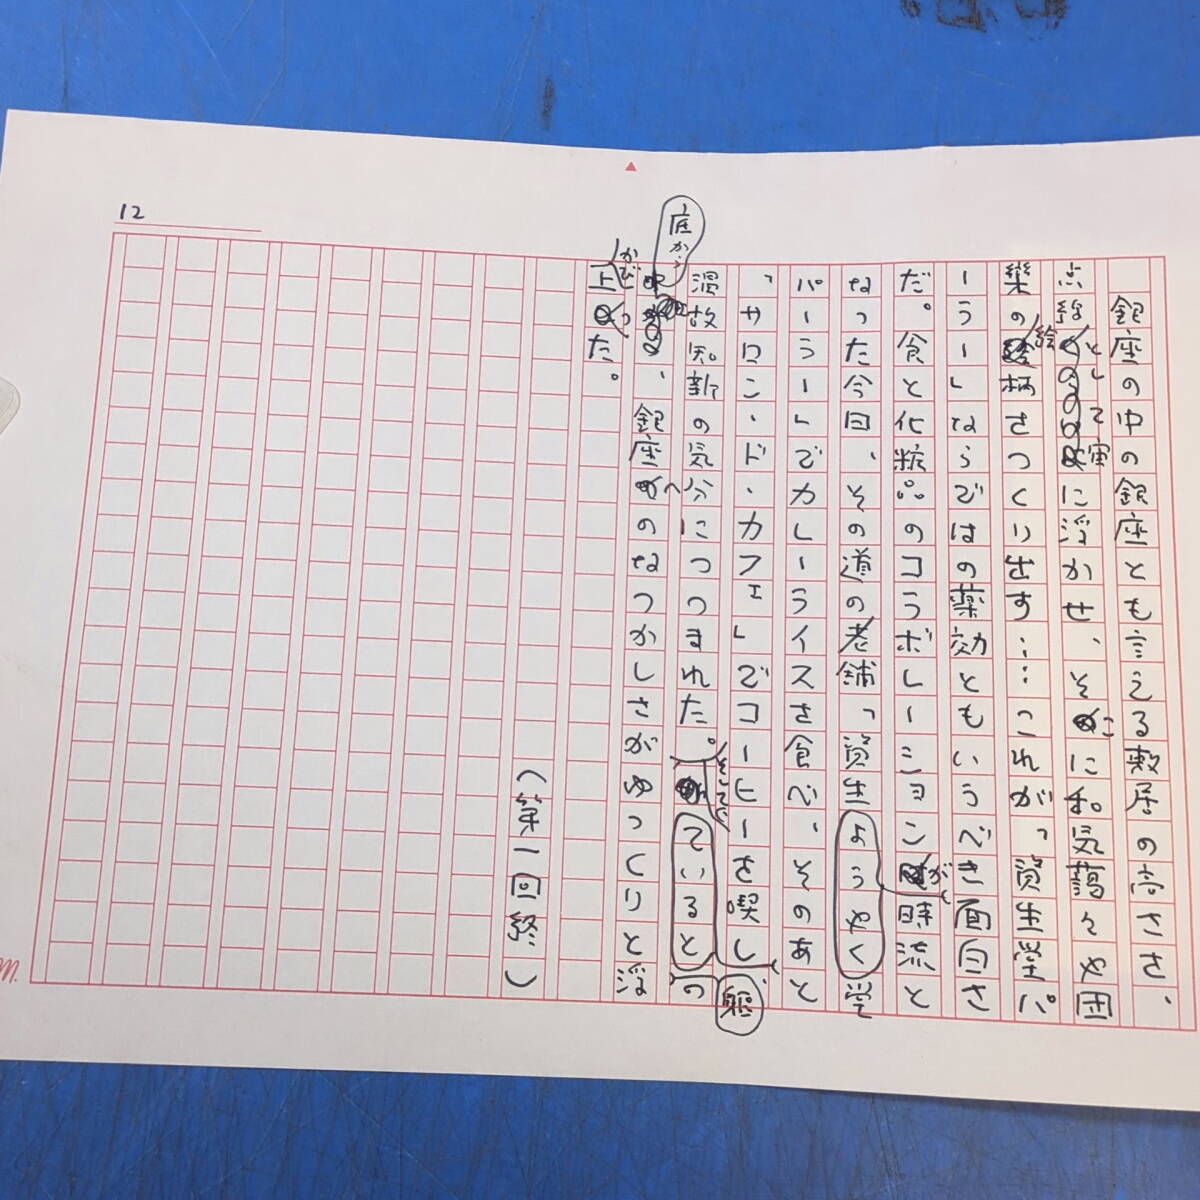 12
銀座の中の銀座とも言える敷居の高ささ、
点絵として宙に浮かせ、そこに和気藹々や団
欒の絵柄さつくり出す……これが「資生堂パ
ーラー」ならではの薬効ともいうべき面白さ
だ。食と化粧品のコラボレーションが、時流と
なった今日、その道の老舗「資生堂
ようやく
パーラー」でカレーライスさ食べ、そのあと
「サロン・ド・カフェ」でコーヒーを喫し、
そして
温故知新の気分につつまれた。
ているとの
庭から
、銀座へのなつかしさがゆっくりと浮
かび
上った。
（第一回終）